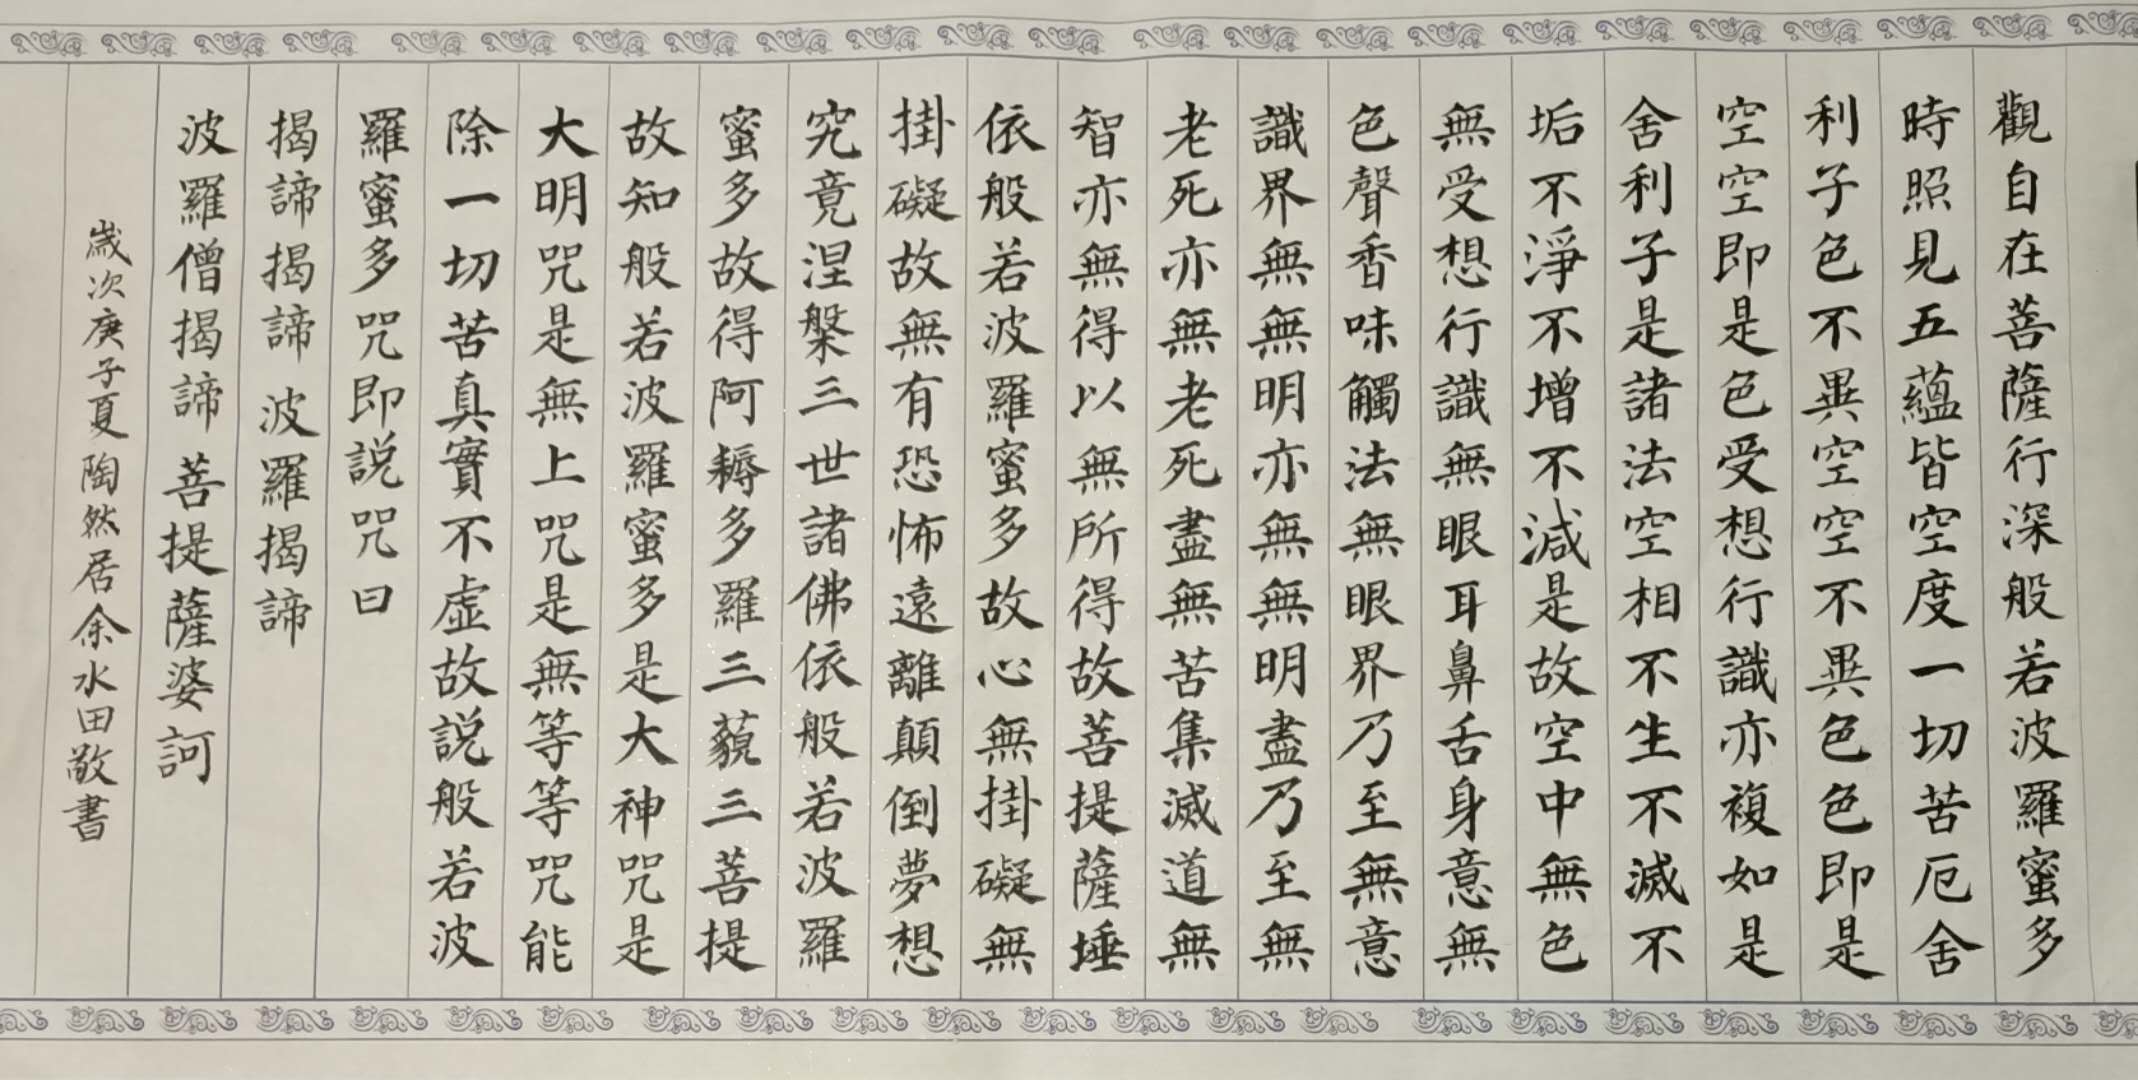 觀自在菩薩行深般若波羅蜜多
時照見五蘊皆空度一切苦厄舍
利子色不異空空不異色色即是
空空即是色受想行識亦複如是
舍利子是諸法空相不生不滅不
垢不淨不增不減是故空中無色
無受想行識無眼耳鼻舌身意無
色聲香味觸法無眼界乃至無意
識界無無明亦無無明盡乃至無
老死亦無老死盡無苦集滅道無
智亦無得以無所得故菩提薩埵
依般若波羅蜜多故心無掛礙無
掛礙故無有恐怖遠離顛倒夢想
究竟涅槃三世諸佛依般若波羅
蜜多故得阿耨多羅三藐三菩提
故知般若波羅蜜多是大神咒是
大明咒是無上咒是無等等咒能
除一切苦真實不虛故説般若波
羅蜜多咒即説咒曰
揭諦揭諦波羅揭諦
波羅僧揭諦菩提薩婆訶
歲次庚子夏陶然居余水田敬書